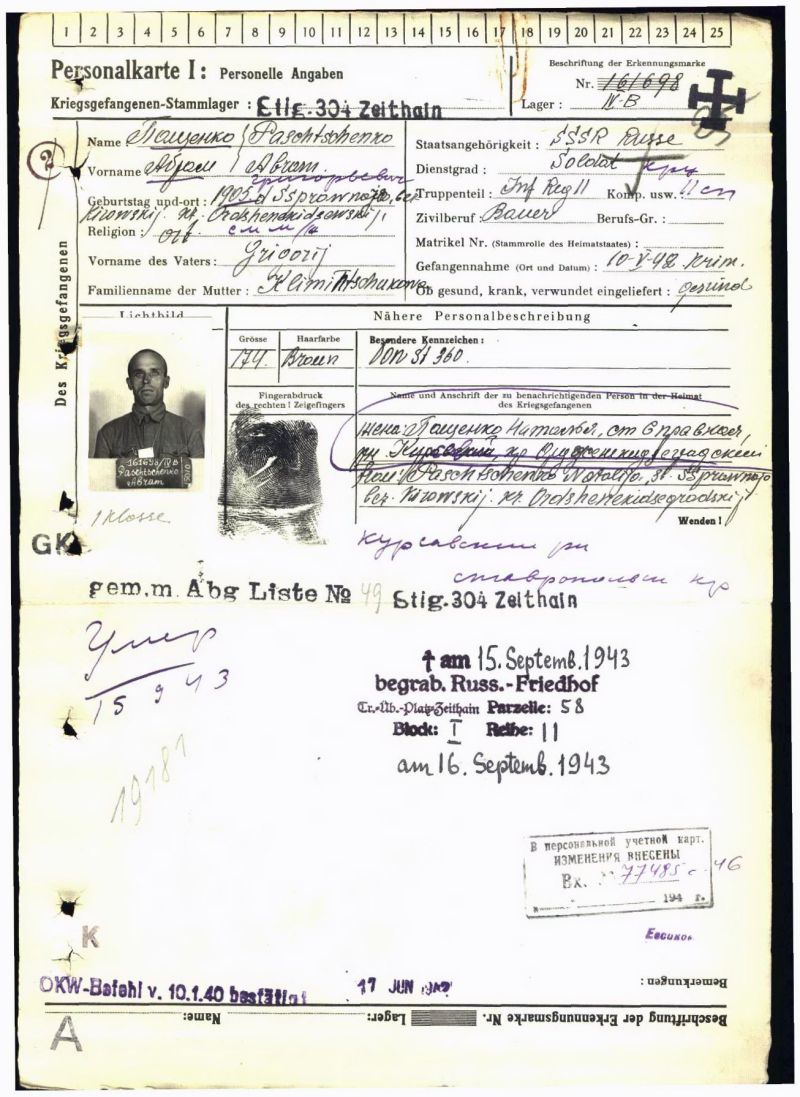 1 2 3 4 5 6 7 8 9 10 11 12 13 14 15 16 17 18 19 20 21 22 23 24 25
Personalkarte I: Personelle Angaben
Beschriftung der Erkennungsmarke
Nr. 161698
Kriegsgefangenen-Stammlager: Stlg. 304 Zeithain
Lager: IV-B
2
Des Kriegsgefangenen
Name Пащенко / Paschtschenko
Vorname Абрам / Abram
григорьевич
Geburtstag und-ort: 1905
Kirowskij. kr. Ordshenekidsewskij.
Religion: ort.
Vorname des Vaters: Grigorij
Familienname der Mutter:
Staatsangehörigkeit: SSSR Russe
Dienstgrad: Soldat кр
Truppenteil: Inf Reg 11 Komp. usw.: 11 сп
Zivilberuf: Bauer Berufs-Gr.:
Matrikel Nr. (Stammrolle des Heimatstaates):
Gefangennahme (Ort und Datum): 10-V-42 Krim.
Ob gesund, krank, verwundet eingeliefert: gesund
Lichtbild
Nähere Personalbeschreibung
Grösse
174
Haarfarbe
Braun
Besondere Kennzeichen:
von St 360.
Fingerabdruck
des rechten! Zeigefingers
161698/IV B
Paschtschenko
Abram
Name und Anschrift der zu benachrichtigenden Person in der Heimat
des Kriegsgefangenen
жена: Пащенко Наталья, ст Справная,
Paschtschenko Natalija, st. Ssprawnaja
ber. Kirowskij kr. Ordshenekidsegradskij
Wenden!
1 Klasse
GK
курсавский рн
ставропольск кр
gem. m. Abg Liste No 49 Stlg. 304 Zeithain
Умер
15 9 43
† am 15. Septemb. 1943
begrab. Russ.-Friedhof
Tr.-Üb.-Platz-Zeithain Parzelle: 58
Block: I Reihe: 11
am 16. Septemb. 1943
19181
В персональной учетной карт.
ИЗМЕНЕНИЯ ВНЕСЕНЫ
Вх. № 77485с-46
194 г.
K
OKW-Befehl v. 10.1.40 bestätigt
17 JUN 1942
Bemerkungen:
Beschriftung der Erkennungsmarke Nr. Lager: Name:
A